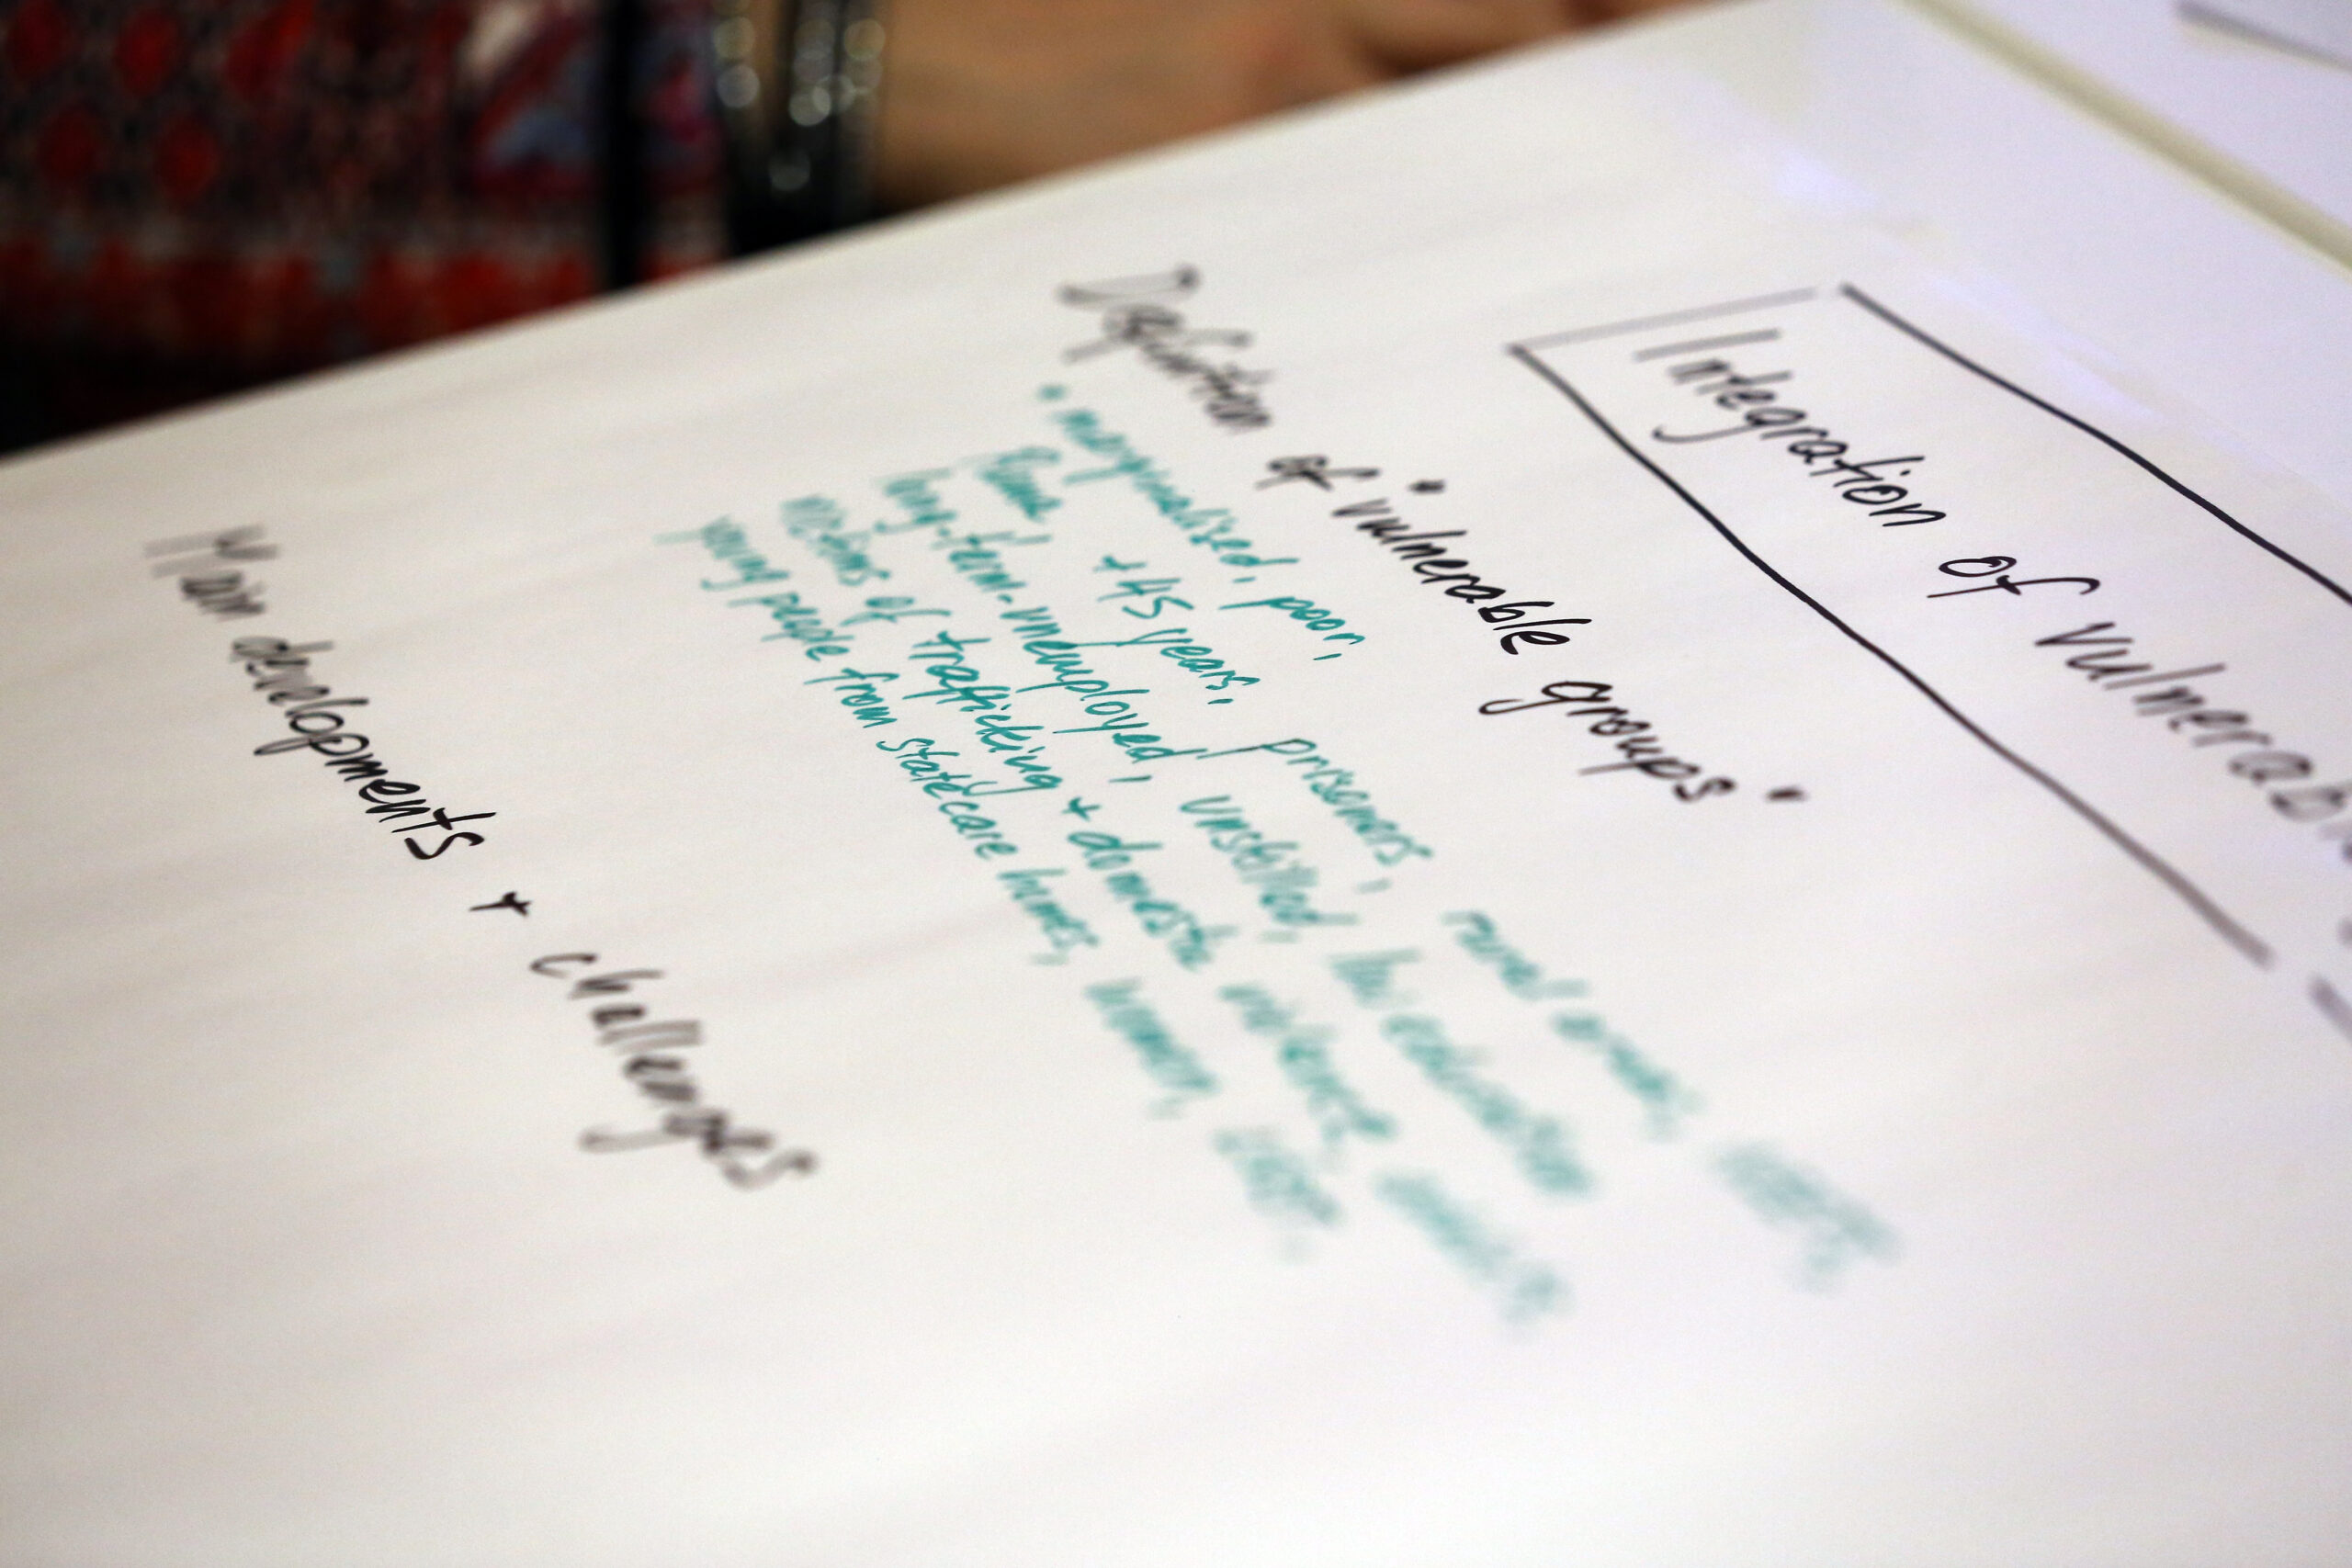 Integration of vulnerab
Definition of "vulnerable groups"
• marginalised, poor,
Roma, +45 years, prisoners, rural areas,
long-term-unemployed, unskilled, low education
victims of trafficking + domestic violence
young people from state care homes, women,
Main developments + challenges